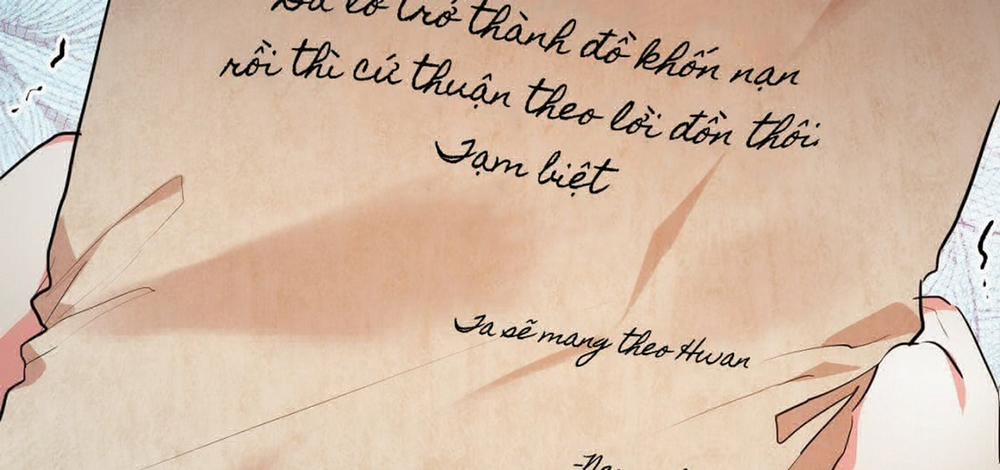 Đã lỡ trở thành đồ khốn nạn
rồi thì cứ thuận theo lời đồn thôi.
Tạm biệt
Ta sẽ mang theo Hwan